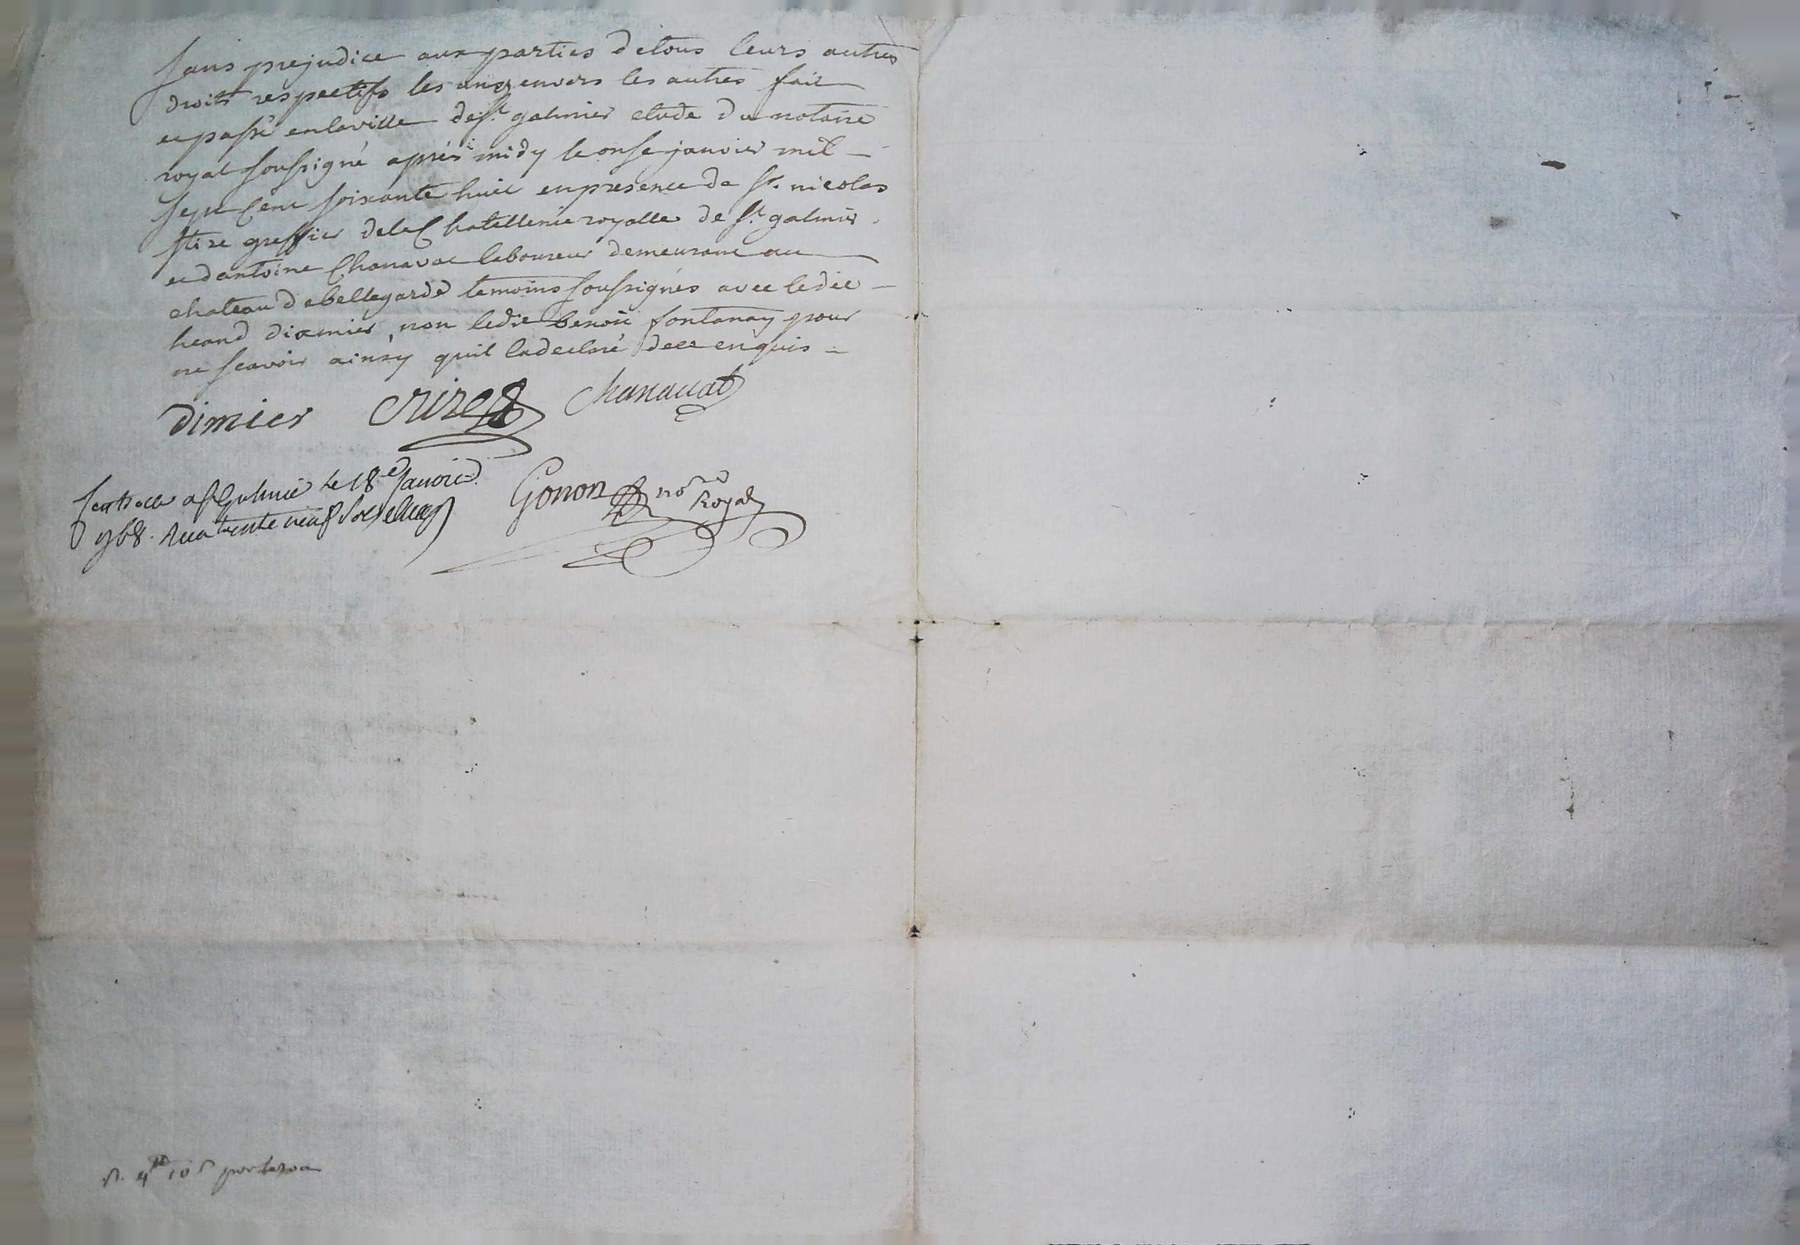 sans prejudice aux parties de tous leurs autres
droits respectifs les uns envers les autres fait
et passé en la ville de St. galmier etude du notaire
royal soussigné après midy le onse janvier mil
sept Cent soixante huit en presence de Sr. nicolas
greffier de la Chatellenie royalle de St galmier
et d'antoine Chanavat laboureur demeurant au
chateau de bellegarde temoins soussignés avec ledit
dimier, non ledit benoit fontanay pour
ne scavoir ainsy quil la declaré de ce enquis
dimier Chanavat
le 18e Janvier Gonon nore
1768. Recu trente neuf sols Royal
4# 10 s